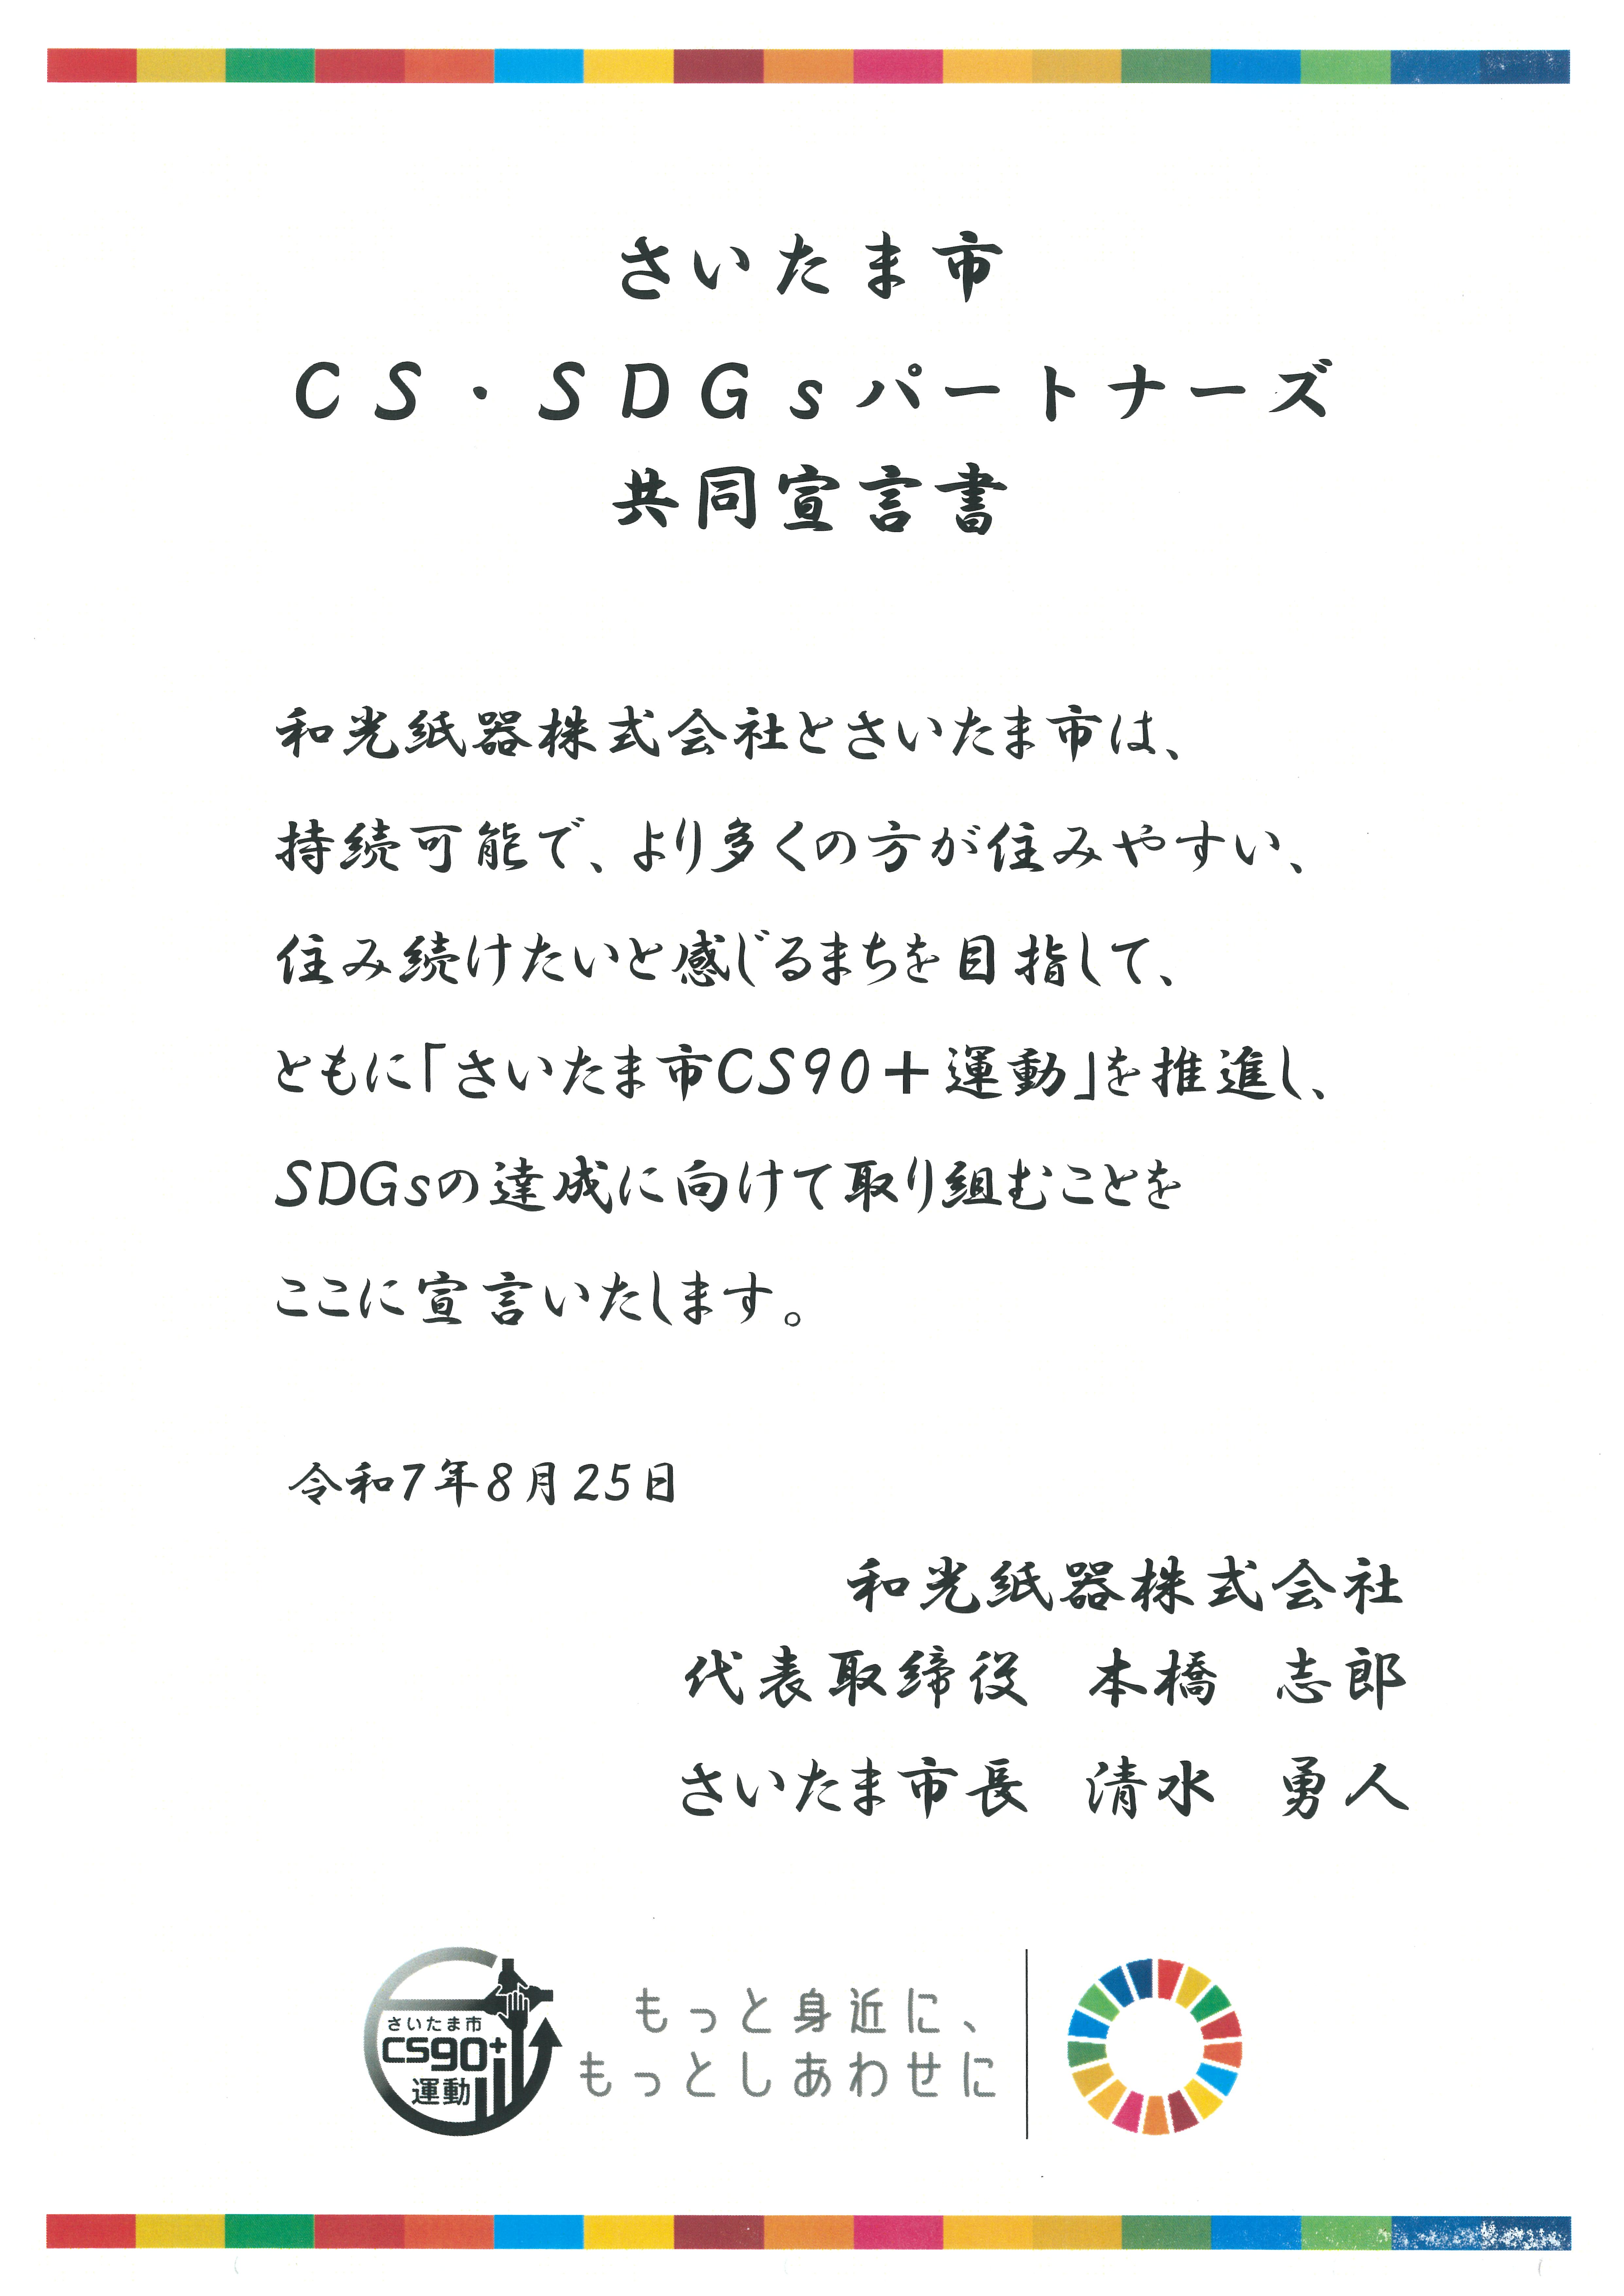 さいたま市
CS・SDGsパートナーズ
共同宣言書
和光紙器株式会社とさいたま市は、
持続可能で、より多くの方が住みやすい、
住み続けたいと感じるまちを目指して、
ともに「さいたま市CS90＋運動」を推進し、
SDGsの達成に向けて取り組むことを
ここに宣言いたします。
令和7年8月25日
和光紙器株式会社
代表取締役　本橋　志郎
さいたま市長　清水　勇人
さいたま市
CS90+
運動
もっと身近に、
もっとしあわせに